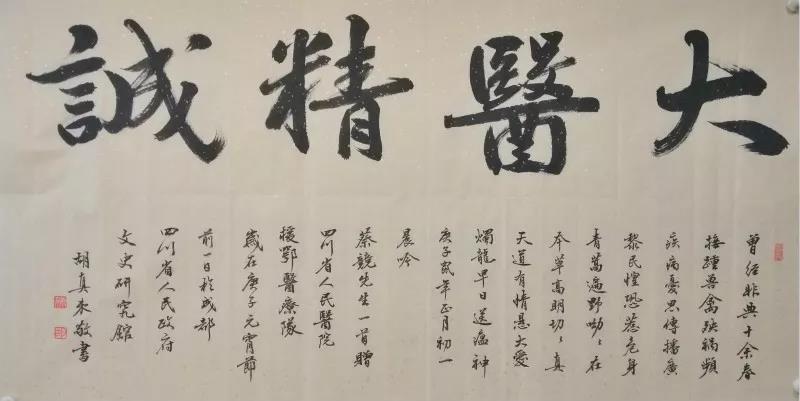 大醫精誠
曾经非典十余春
接踵兽禽殃祸頻
疾病憂思傳播廣
黎民惶恐惹危身
青蒿遍野呦〻在
本草高明切〻真
天道有情悬大愛
燭龍早日送瘟神
庚子鼠年正月初一
晨吟
蔡競先生一首贈
四川省人民醫院
援鄂醫療隊
歲在庚子元宵節
前一日於成都
四川省人民政府
文史研究館
胡真來敬書